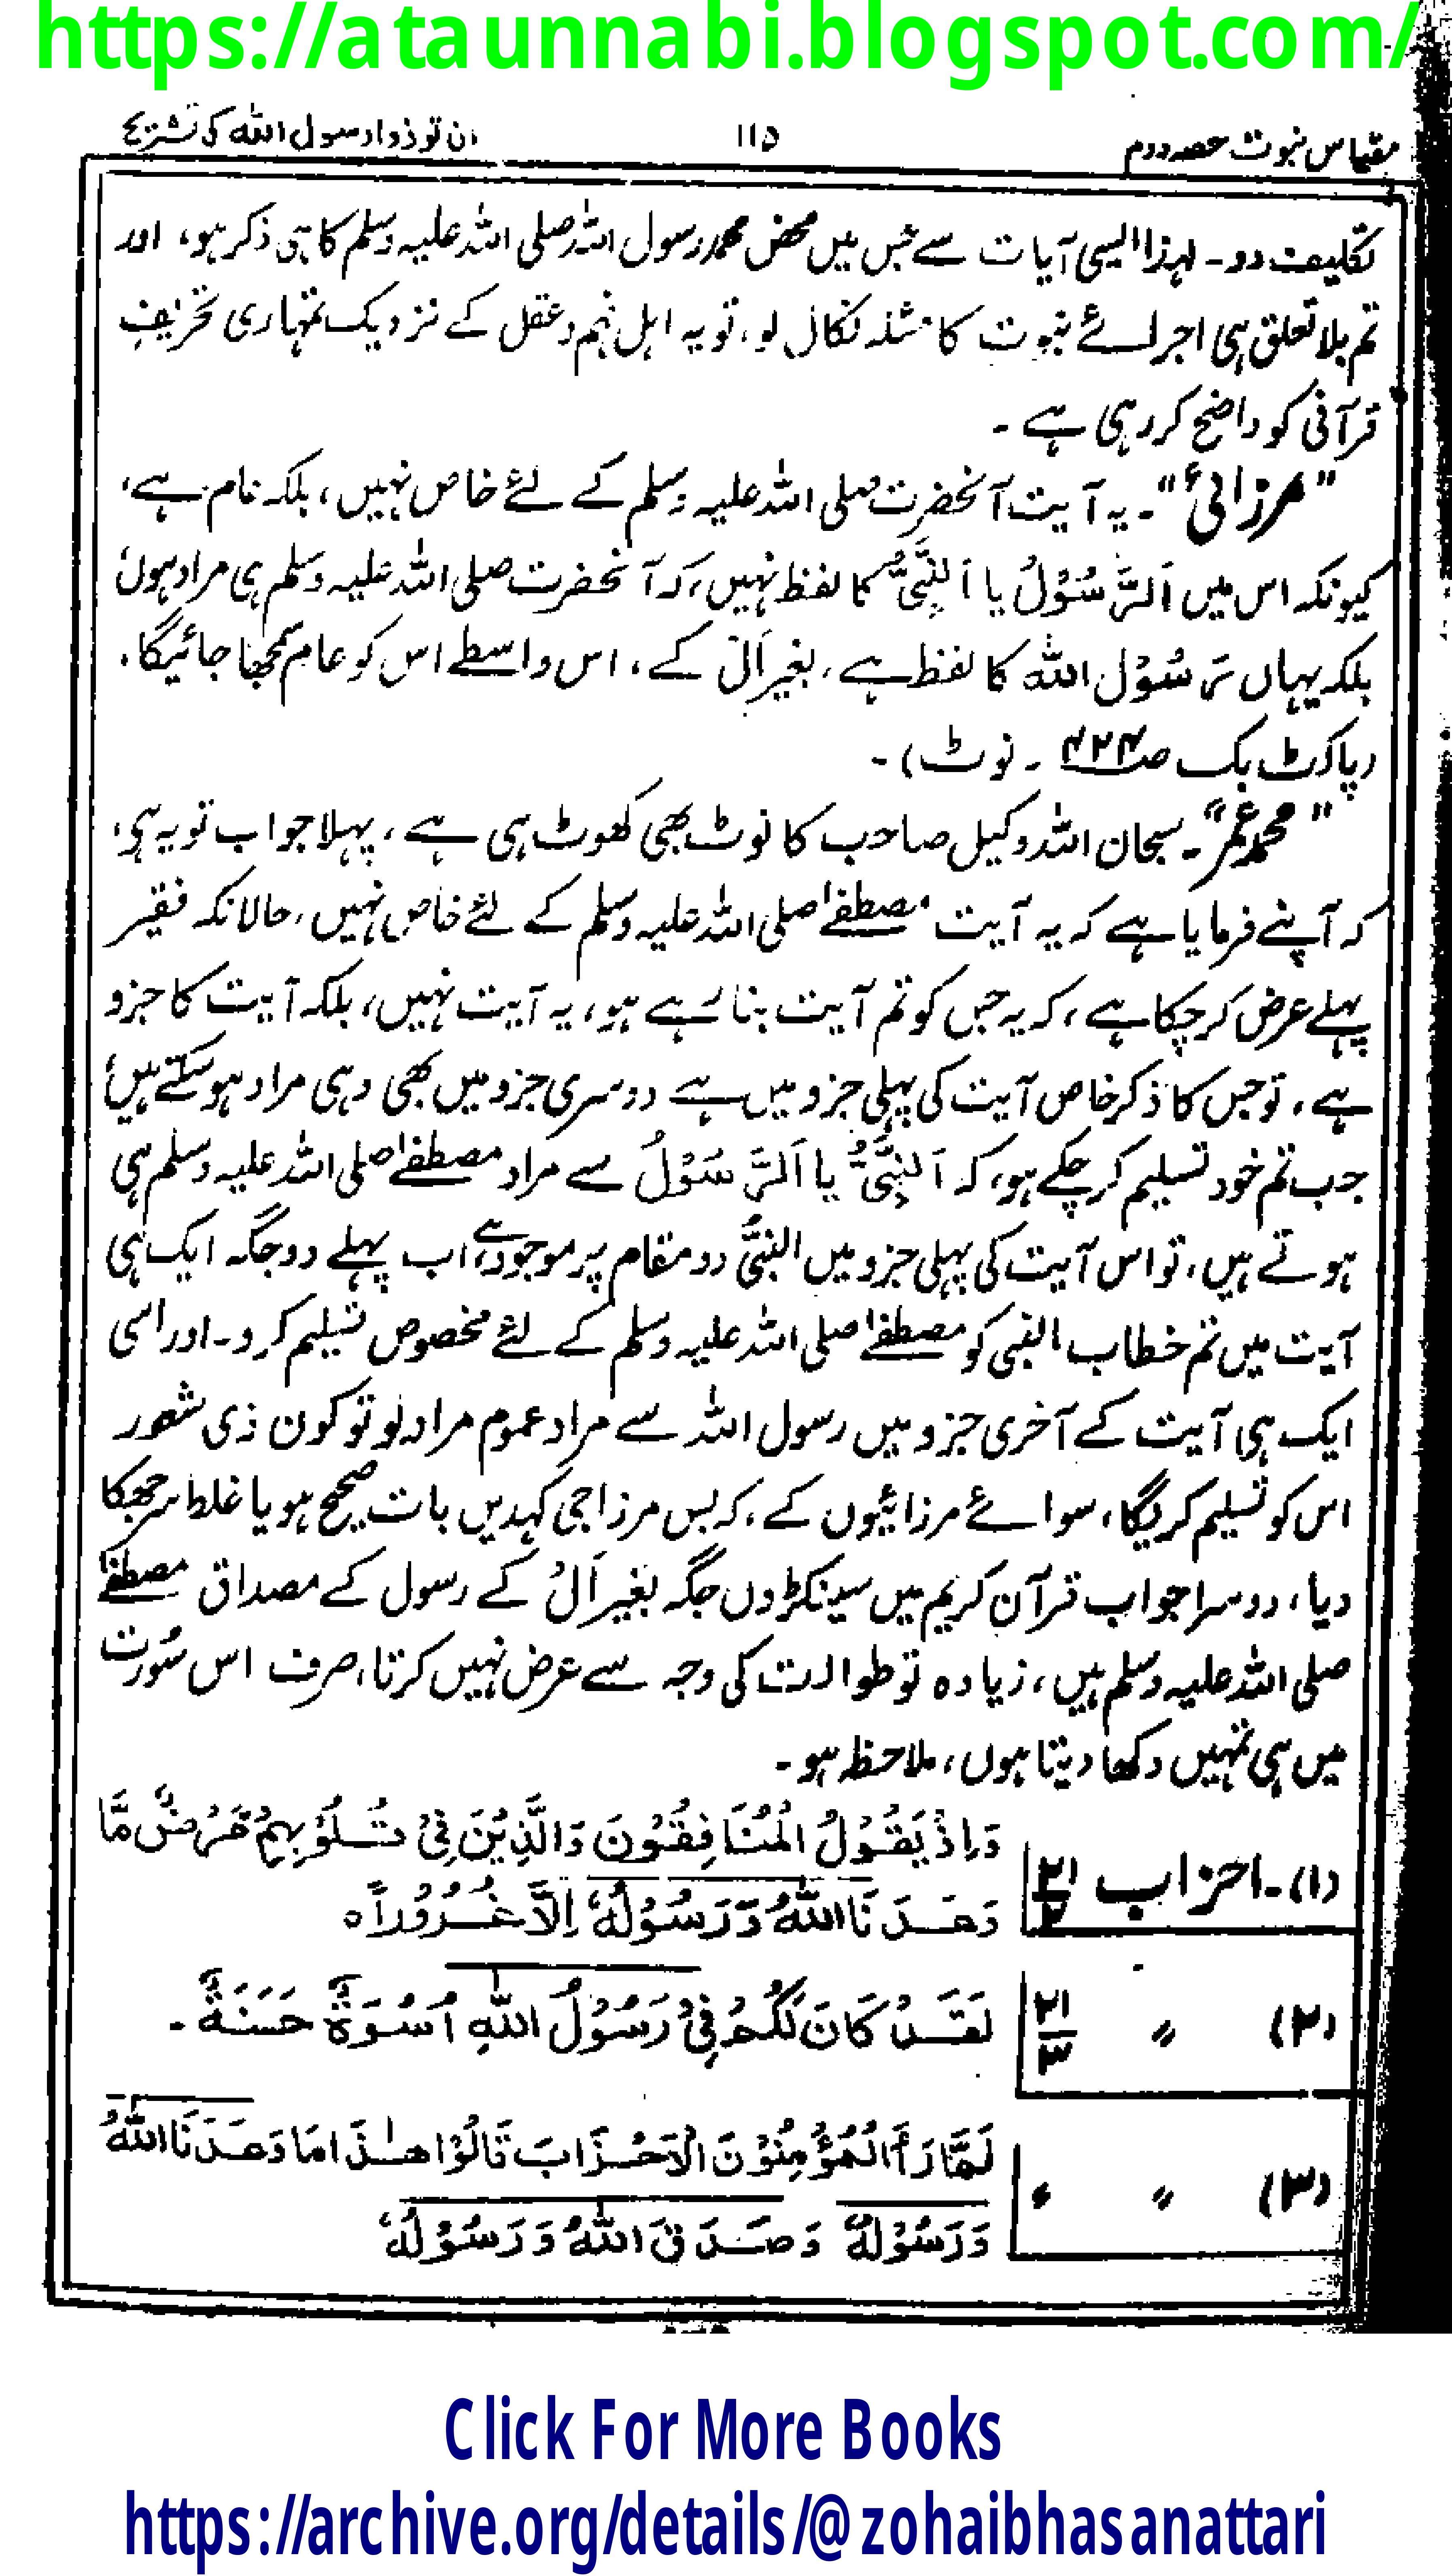 https://ataunnabi.blogspot.com/
مقیاس نبوت حصہ دوم ۱۱۵ ان توذوا رسول اللہ کی تشریح
تکلیف دو۔ لہذا ایسی آیات سے جس میں محض محمد رسول اللہ صلی اللہ علیہ وسلم کا ہی ذکر ہو، اور
تم بلا تعلق ہی اجرائے نبوت کا مسئلہ نکال لو، تو یہ اہل فہم و عقل کے نزدیک تمہاری تحریفِ
قرآنی کو واضح کر رہی ہے ۔
"مرزائی"۔ یہ آیت آنحضرت صلی اللہ علیہ وسلم کے لئے خاص نہیں، بلکہ عام ہے،
کیونکہ اس میں اَلرَّسُوْلُ یا اَلنَّبِیُّ کا لفظ نہیں، کہ آنحضرت صلی اللہ علیہ وسلم ہی مراد ہوں،
بلکہ یہاں رَسُوْل اللہ کا لفظ ہے، بغیر اَلْ کے، اس واسطے اس کو عام سمجھا جائیگا،
(پاکٹ بک صـ ۴۲۴ ۔ نوٹ) ۔
"محمد عمر"۔ سبحان اللہ وکیل صاحب کا نوٹ بھی کھوٹ ہی ہے، پہلا جواب تو یہ ہی،
کہ آپنے فرمایا ہے کہ یہ آیت مصطفےٰ صلی اللہ علیہ وسلم کے لئے خاص نہیں، حالانکہ فقیر
پہلے عرض کر چکا ہے، کہ یہ جس کو تم آیت بنا رہے ہو، یہ آیت نہیں، بلکہ آیت کا جزو
ہے، تو جس کا ذکر خاص آیت کی پہلی جزو میں ہے دوسری جزو میں بھی وہی مراد ہو سکتے ہیں،
جب تم خود تسلیم کر چکے ہو، کہ اَلنَّبِیُّ یا اَلرَّسُوْلُ سے مراد مصطفےٰ صلی اللہ علیہ وسلم ہی
ہوتے ہیں، تو اس آیت کی پہلی جزو میں النبیُّ دو مقام پر موجود ہے، اب پہلے دو جگہ ایک ہی
آیت میں تم خطاب النبی کو مصطفےٰ صلی اللہ علیہ وسلم کے لئے مخصوص تسلیم کرو۔ اور اسی
ایک ہی آیت کے آخری جزو میں رسول اللہ سے مراد عموم مراد لو تو کون ذی شعور
اس کو تسلیم کریگا، سوائے مرزائیوں کے، کہ بس مرزا جی کہدیں بات صحیح ہو یا غلط سر جھکا
دیا، دوسرا جواب قرآن کریم میں سینکڑوں جگہ بغیر اَلْ کے رسول کے مصداق مصطفےٰ
صلی اللہ علیہ وسلم ہیں، زیادہ تو طوالت کی وجہ سے عرض نہیں کرتا، صرف اس سُورت
میں ہی تمہیں دکھا دیتا ہوں، ملاحظہ ہو ۔
(۱)۔ احزاب ۲۱/۲ وَاِذْ یَقُوْلُ الْمُنَافِقُوْنَ وَالَّذِیْنَ فِیْ قُلُوْبِہِمْ مَّرَضٌ مَّا
وَعَدَنَا اللہُ وَرَسُوْلُہٗ اِلَّا غُرُوْراً ہ
(۲) " ۲۱/۳ لَقَدْ کَانَ لَکُمْ فِیْ رَسُوْلِ اللہِ اُسْوَۃٌ حَسَنَۃٌ ۔
(۳) " " لَمَّا رَأَ الْمُؤْمِنُوْنَ الْاَحْزَابَ قَالُوْا ھٰذَا مَا وَعَدَنَا اللہُ
وَرَسُوْلُہٗ وَصَدَقَ اللہُ وَرَسُوْلُہٗ
Click For More Books
https://archive.org/details/@zohaibhasanattari